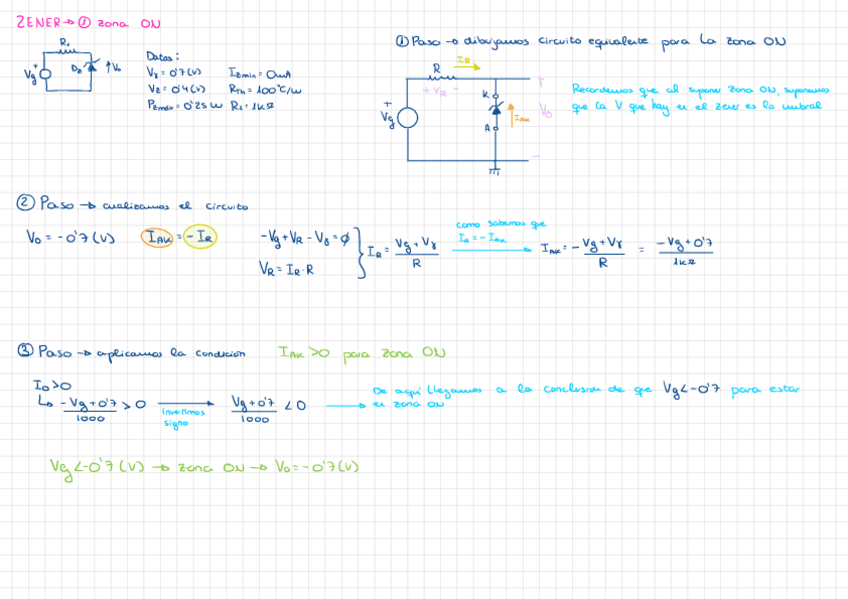 ZENER→ ① zona ON
R₁
Vg
+
Dz
Vo
Datos:
Vγ = 0'7(V)
Izmin = 0mA
Vz = 0'4(V)
RTh = 100°C/W
Pzmáx = 0'25W
R1 = 1kΩ
① Paso → dibujamos circuito equivalente para la zona ON
R
IR
+ VR -
K
A
IAK
+
Vg
Vo
-
Recordemos que al suponer zona ON, suponemos
que la V que hay en el zener es la umbral
② Paso → analizamos el circuito
Vo = -0'7(V)
IAK = -IR
-Vg+VR-Vγ=0
VR = IR·R
IR = Vg+Vγ / R
como sabemos que
IR = -IAK
IAK = - Vg+Vγ / R = -Vg+0'7 / 1kΩ
③ Paso → aplicamos la condición
IAK >0 para zona ON
ID>0
↳ -Vg+0'7 / 1000 > 0
invertimos
signo
Vg+0'7 / 1000 < 0
De aquí llegamos a la conclusión de que Vg<-0'7 para estar
en zona ON
Vg<-0'7(V) → zona ON → Vo=-0'7(V)